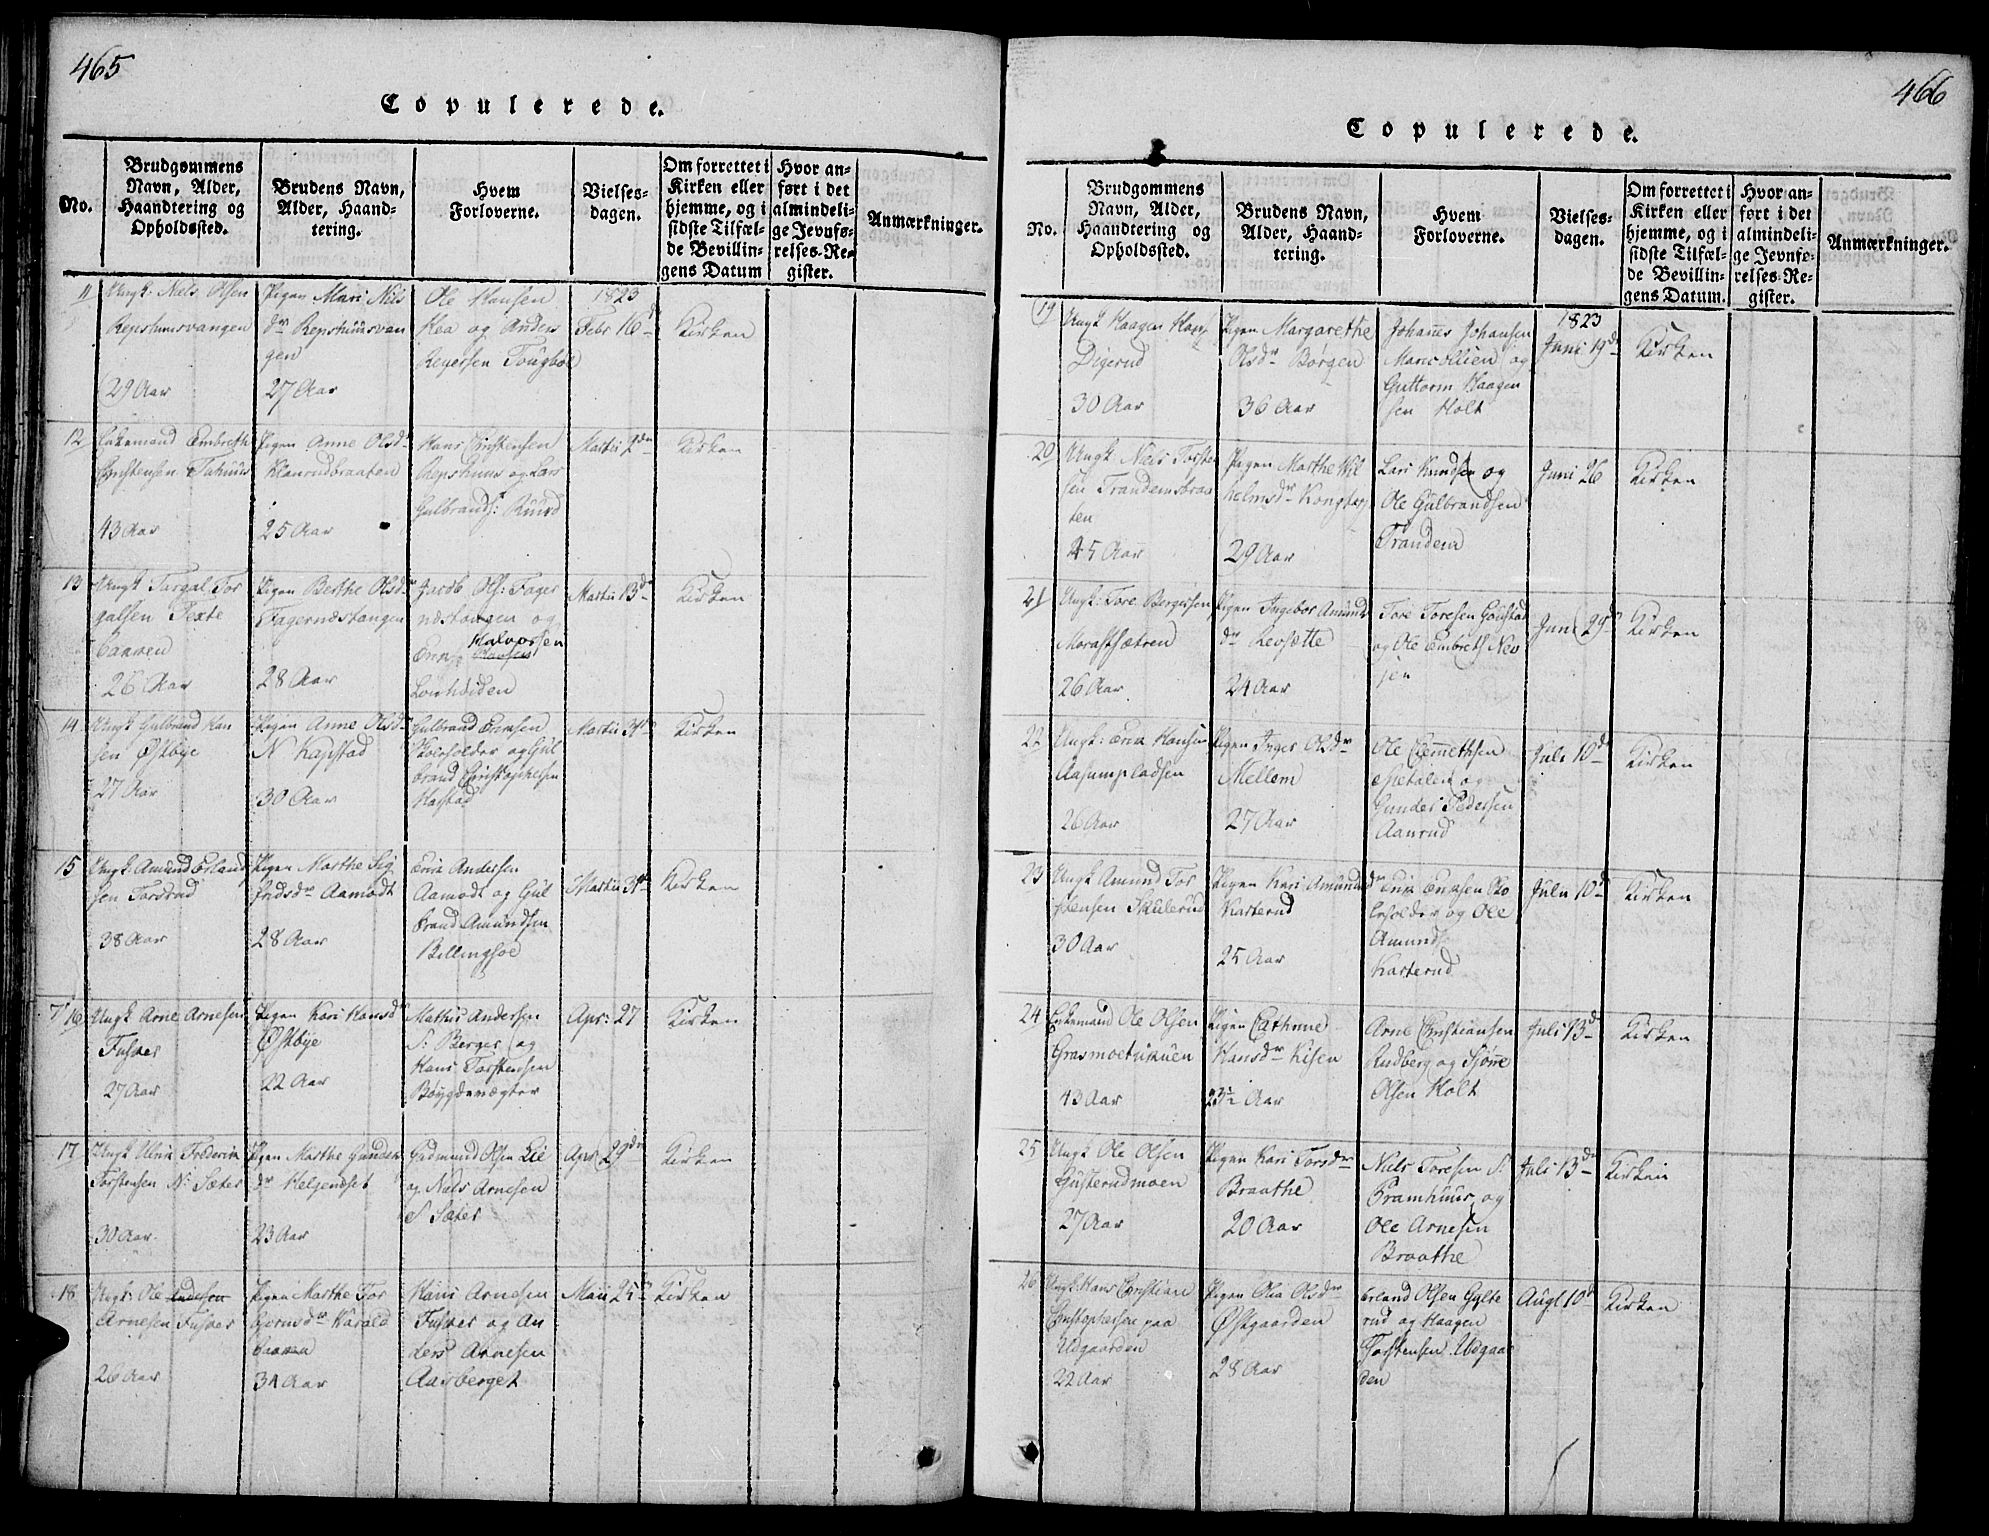 465
Copulerede.
No.
Brudgommens Navn, Alder, Haandtering og Opholdssted.
Brudens Navn, Alder, Haandtering.
Hvem Forloverne.
Vielses-dagen.
Om forrettet i Kirken eller hjemme, og i sidste Tilfælde Bevillingens Datum
Hvor anført i det almindelige Jevnførelses-Register.
Anmærkninger.
11
Ungk: Niels Olsen
Repshuusvangen
29 Aar
Pigen Mari Nils
dr Repshuusvan
gen
27 Aar
Ole Hansen
og Anders
1823
Febr 16d
Kirken
12
Enkemand Embreth
Christensen
43 Aar
Pigen Anne Olsdr
Klanrudbraaten
25 Aar
Hans Christensen
Repshuus og Lars
Gulbrands: Ruud
Martii 2den
Kirken
13
Ungk Torgal Tor
galsen
26 Aar
Pigen Berthe Olsdr
Fagernæstangen
28 Aar
Jacob Ols: Fager
næstangen og
Eric Halvorsen
Martii 13de
Kirken
14
Ungk Gulbrand Han
sen Østbye
27 Aar
Pigen Anne Olsdr
N Kapstad
30 Aar
Gulbrand Ericsen
Skoleholder og Gul
brand Christophersen
Harstad
Martii 31te
Kirken
15
Ungk: Amund Erland
sen Torsrud
38 Aar
Pigen Marthe Sig
fridsdr Aamodt
28 Aar
Eric Andersen
Aamodt og Gul
brand Amundsen
Billingsoe
Martii 31te
Kirken
16
Ungk Arne Arnesen
Fusker
27 Aar
Pigen Kari Hansd
Østbye
22 Aar
Mathis Andersen
S: Berger og
Hans Torstensen
Bøygdevægter
Apr: 27
Kirken
17
Ungk Ulric Frideric
Torstensen N: Sæter
30 Aar
Pigen Marthe Gunder
dr Helgendset
23 Aar
Gudmund Olsen Lie
og Niels Arnesen
S Sæter
Apr 29de
Kirken
18
Ungk: Ole
Arnesen Fusker
26 Aar
Pigen Marthe Tor
bjornsdr Harald
34 Aar
Hans Arnesen
Fusker og An
ders Arnesen
Aasberget
Maii 25de
Kirken
466
Copulerede.
No.
Brudgommens Navn, Alder, Haandtering og Opholdssted.
Brudens Navn, Alder, Haandtering.
Hvem Forloverne.
Vielses-dagen.
Om forrettet i Kirken eller hjemme, og i sidste Tilfælde Bevillingens Datum.
Hvor anført i det almindelige Jevnførelses-Register.
Anmærkninger.
19
Ungk Haagen Hans
Digerud
30 Aar
Pigen Margarethe
Olsdr Børgen
36 Aar
Johannes Johansen
og
Guttorm Haagen
sen Holt
1823
Juni 19de
Kirken
20
Ungk Niels Torste
sen Trandemsbraa
ten
45 Aar
Pigen Marthe Wil
helmsdr Kongberg
29 Aar
Lars Knudsen og
Ole Gulbrandsen
Trandem
Juni 26
Kirken
21
Ungk: Tore Bergersen
Morastsætren
26 Aar
Pigen Ingebor Amunds
dr Levsætte
24 Aar
Tore Toresen Gaustad
og Ole Embreths Nev
jen
Juni 29d
Kirken
22
Ungk: Eric Hansen
Aasumpladsen
26 Aar
Pigen Inger Olsdr
Mellem
27 Aar
Ole Clemethsen
og
Gunder Pedersen
Aanrud
Juli 10d
Kirken
23
Ungk Amund Tor
stensen Skulerud
30 Aar
Pigen Kari Amundsd
Karterud
25 Aar
Eric Ericsen Sko
leholder og Ole
Amunds
Karterud
Julii 10d
Kirken
24
Enkemand Ole Olsen
43 Aar
Pigen Cathrine
Hansdr Kisen
23½ Aar
Arne Christiansen
Rudberg og Sjønne
Olsen Holt
Juli 13de
Kirken
25
Ungk Ole Olsen
Gusterudmoen
27 Aar
Pigen Kari Torsdr
Braathe
20 Aar
Niels Toresen S:
Bramhuus og
Ole Arnesen
Braathe
Juli 13de
Kirken
26
Ungk Hans Christian
Christophersen paa
Udgaarden
22 Aar
Pigen Olia Olsdr
Østgaarden
28 Aar
Erland Olsen Gylte
rud og Haagen
Torstensen Udgaar
den
Augt 10d
Kirken